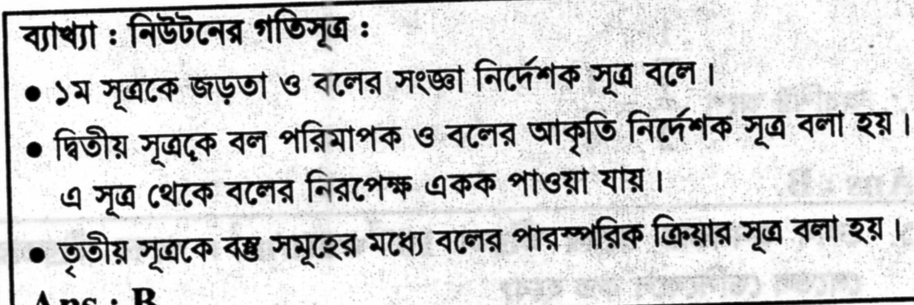 ব্যাখ্যা : নিউটনের গতিসূত্র :
● ১ম সূত্রকে জড়তা ও বলের সংজ্ঞা নির্দেশক সূত্র বলে।
● দ্বিতীয় সূত্রকে বল পরিমাপক ও বলের আকৃতি নির্দেশক সূত্র বলা হয়।
এ সূত্র থেকে বলের নিরপেক্ষ একক পাওয়া যায়।
● তৃতীয় সূত্রকে বস্তু সমূহের মধ্যে বলের পারস্পরিক ক্রিয়ার সূত্র বলা হয়।
Ans : B